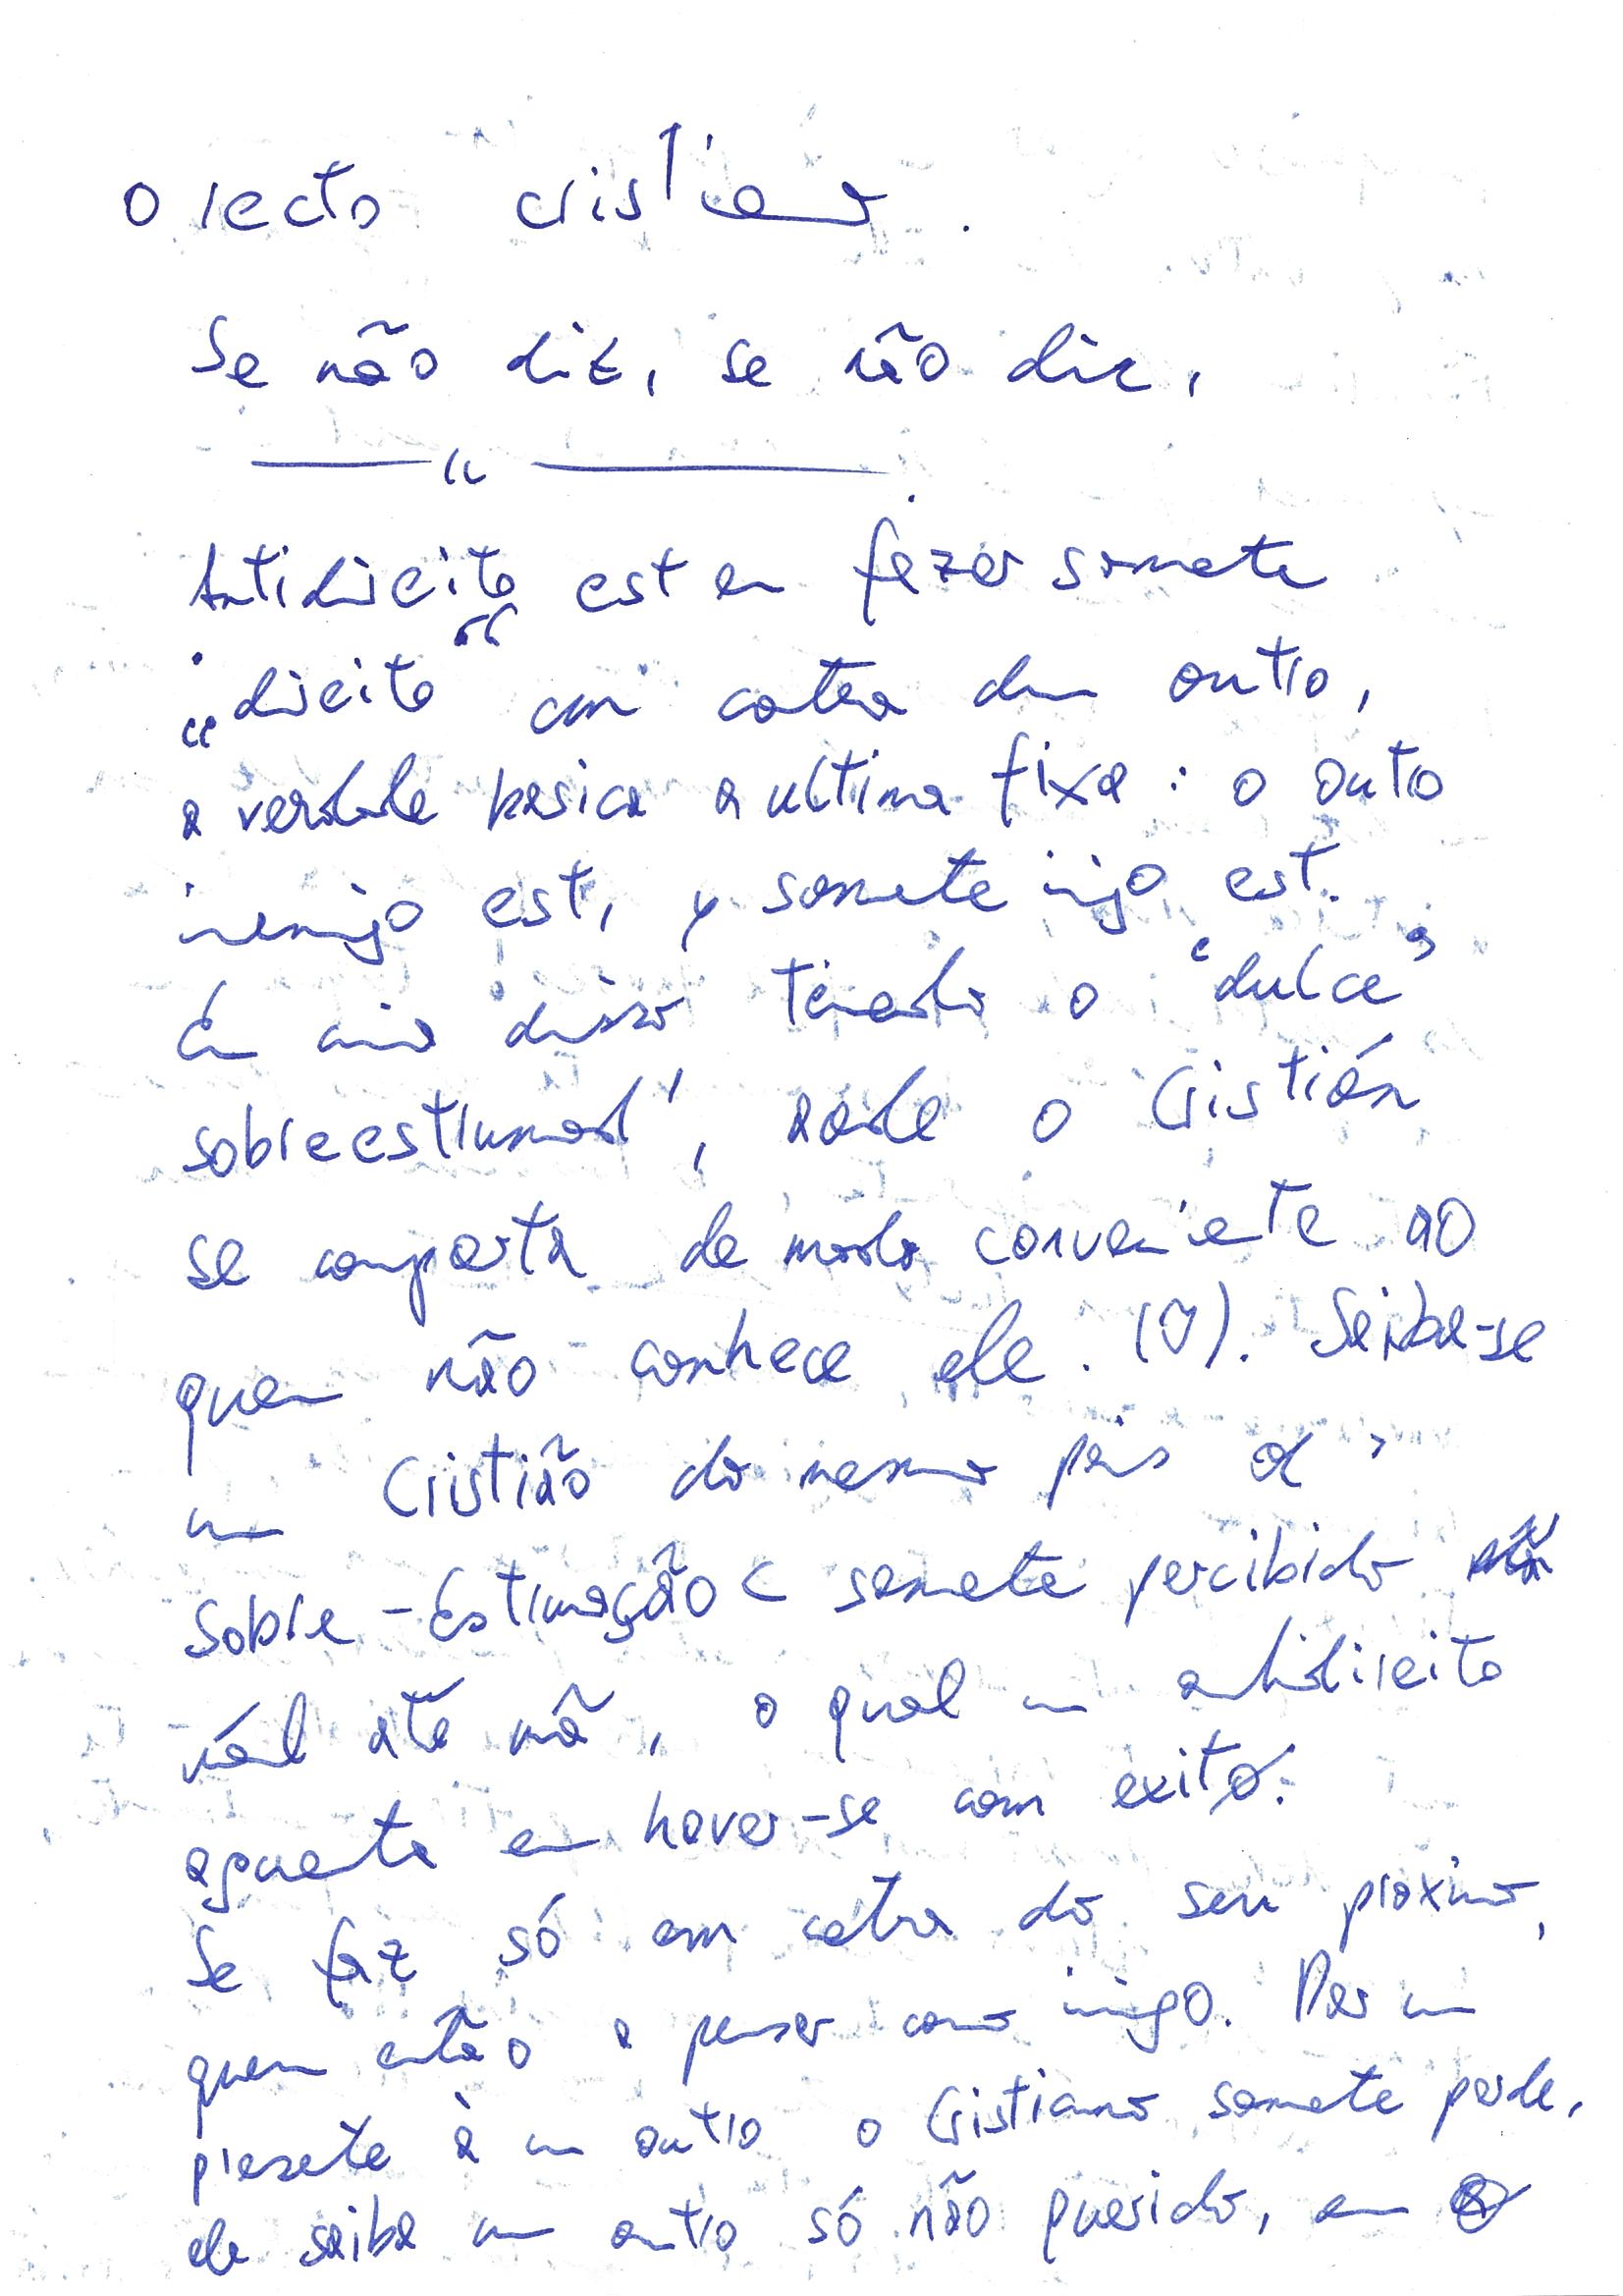 o recto cristiano.
Se não diz, se não diz,
—— “ ——
Antidireito est en fazer somete
„direito“ em cotra dum outro,
a verdade basica a ultima fixa: o outo
inemijo est, y somete inijo est.
tenedo o “dulce”
sobreestiumad', aode o Cristián
se comporta de modo conveniente ao
quem não conhece ele. (V). Seiba-se
um Cristião do mesmo país
Sobre-Estimação < somete percibido
até nã, o qual um antidireito
aguenta em haver-se com exito.
Se faz só em cotra do seu proximo,
quem então a pensar como inigo. Dar um
presete à um outro o Cristiano somete perde,
ele seiba um outro só não querido, em